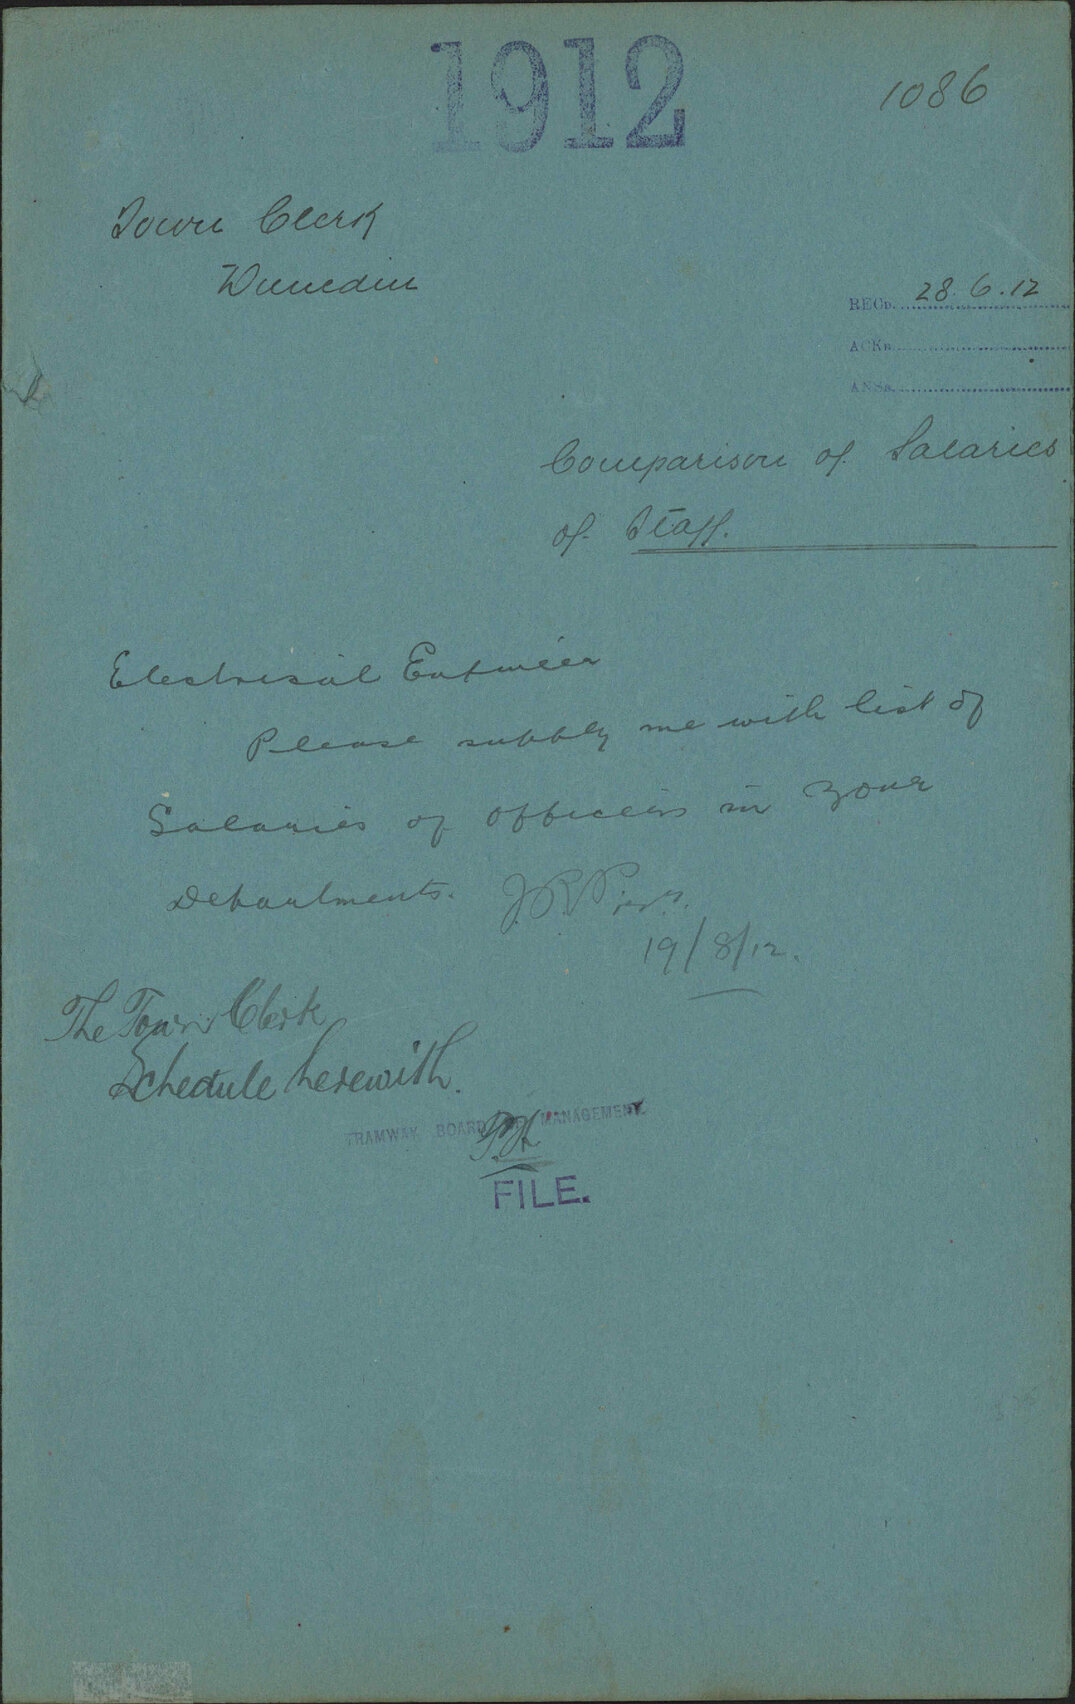 1912
1086
Town Clerk
Dunedin
RECD. 28.6.12
ACKD.
ANSD.
Comparison of Salaries
of Staff.
Electrical Engineer
Please supply me with list of
Salaries of officers in your
Departments.
19/8/12.
The Town Clerk
Schedule herewith.
TRAMWAY BOARD MANAGEMENT
FILE.